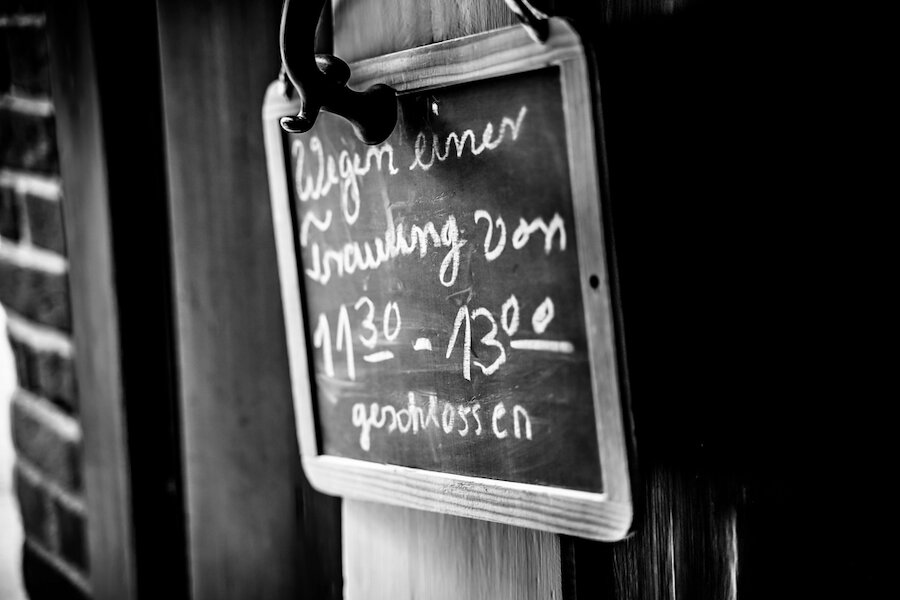 Wegen einer
Trauung von
11³⁰ - 13⁰⁰
geschlossen